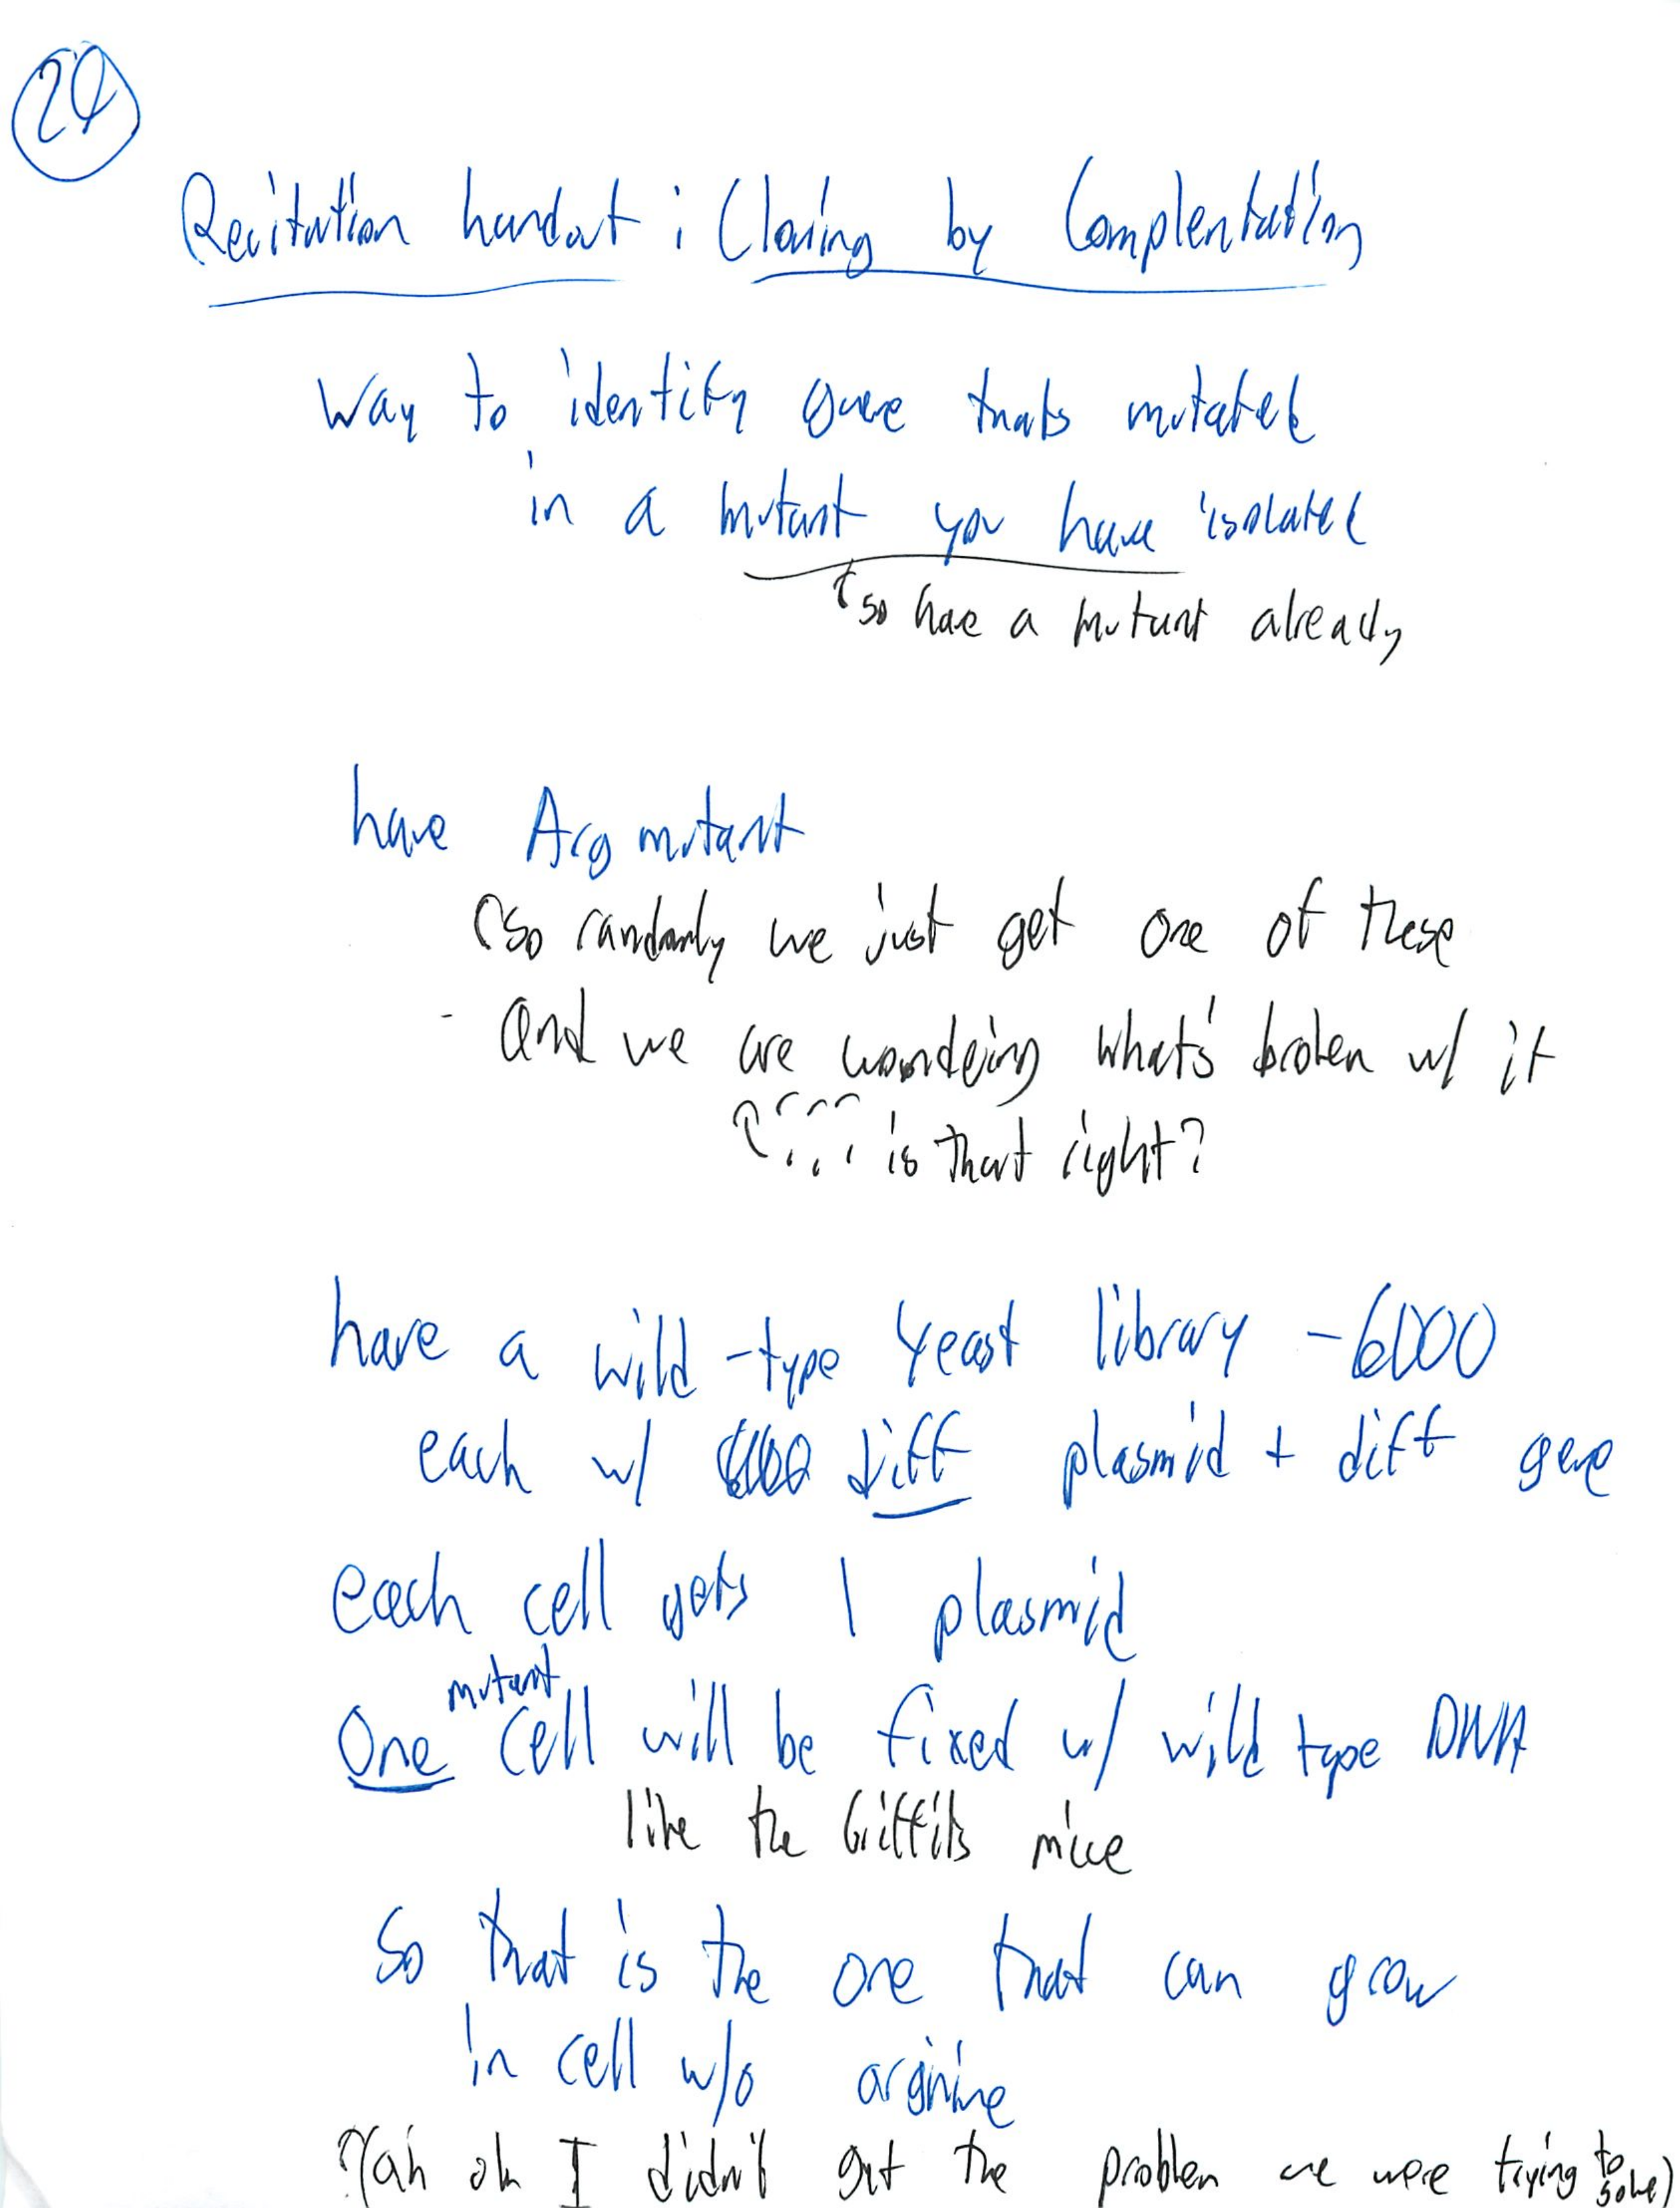 24
Recitation handout : Cloning by Complentation
Way to identify gene thats mutated
in a mutant you have isolated
so have a mutant already
have Arg mutant
so randomly we just get one of these
- And we are wondering what's broken w/ it
is that right?
have a wild-type yeast library - 6000
each w/ diff plasmid + diff gene
each cell gets 1 plasmid
mutant
One cell will be fixed w/ wild type DNA
like the Griffiths mice
So that is the one that can grow
in cell w/o arginine
(ah ok I didn't get the problem we were trying to solve)